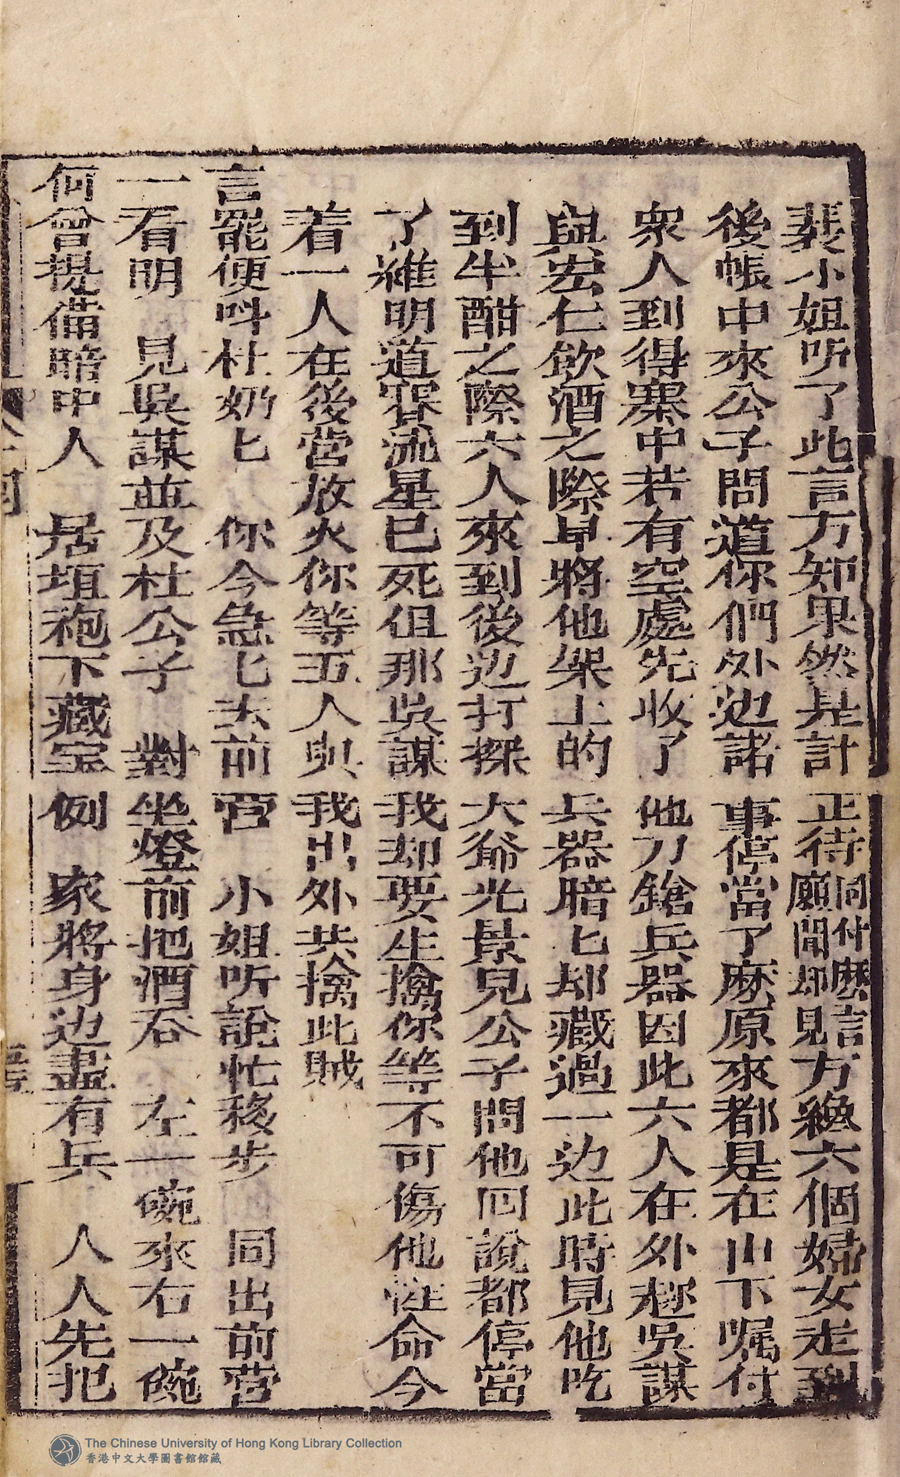 裴小姐听了此言方知果然是計正待同什麽言願聞却見方纔六個婦女走到
後帳中來公子問道你們外边諸事停當了麽原來都是在山下嘱付
衆人到得寨中若有空處先收了他刀鎗兵器因此六人在外趂吳謀
與宏仁飲酒之際早將他架上的兵器暗匕却藏過一边此時見他吃
到半酣之際六人來到後边打探大爺光景見公子問他囘說都停當
了維明道賽流星已死但那吳謀我却要生擒你等不可傷他性命今
着一人在後营放火你等五人與我出外共擒此賊
言罷便呌杜奶匕 你今急匕去前营 小姐听說忙移步 同出前营
一看明 見吳謀並及杜公子 對坐燈前把酒吞 左一碗來右一碗
何曾提備暗中人 居垣袍下藏宝例 家將身边盡有兵 人人先把
The Chinese University of Hong Kong Library Collection
香港中文大學圖書館館藏